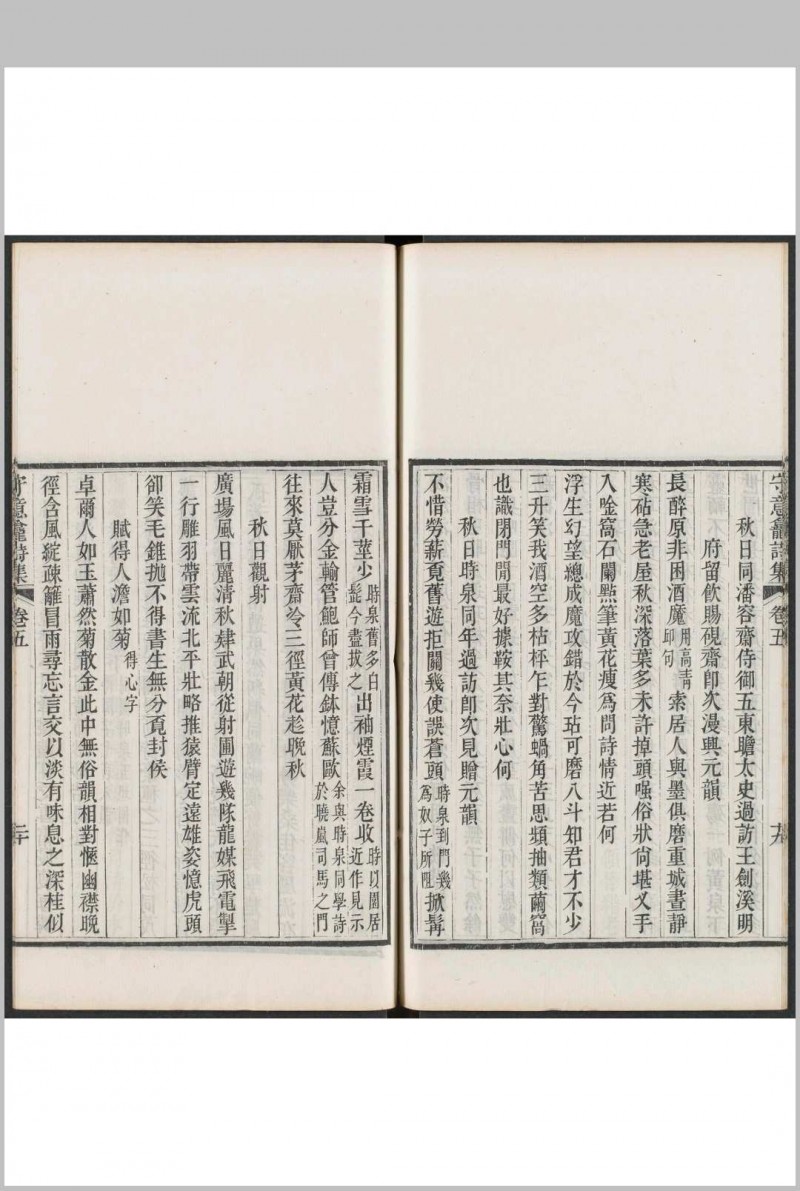 守意龕詩集 卷五 十九
秋日同潘容齋侍御五東瞻太史過訪王劍溪明
府留飲賜硯齋卽次漫興元韻
長醉原非困酒魔用高青邱句索居人與墨俱磨重城晝靜
寒砧急老屋秋深落葉多未許掉頭嗤俗狀尙堪乂手
入唫窩石闌點筆黃花瘦爲問詩情近若何
浮生幻望總成魔攻錯於今玷可磨八斗知君才不少
三升笑我酒空多枯枰乍對驚蝸角苦思頻抽類繭窩
也識閉門閒最好據鞍其奈壯心何
秋日時泉同年過訪卽次見贈元韻
不惜勞薪覓舊遊拒關幾使誤蒼頭時泉到門幾爲奴子所阻掀髯
霜雪千莖少時泉舊多白髭今盡拔之出袖煙霞一卷收時以閒居近作見示
人豈分金輸管鮑師曾傳鉢憶蘇歐余與時泉同學詩於曉嵐司馬之門
往來莫厭茅齋冷三徑黃花趁晚秋
秋日觀射
廣場風日麗淸秋肄武朝從射圃遊幾隊龍媒飛電掣
一行雕羽帶雲流北平壯略推猿臂定遠雄姿憶虎頭
卻笑毛錐拋不得書生無分覓封侯
賦得人澹如菊得心字
卓爾人如玉蕭然菊散金此中無俗韻相對愜幽襟晚
徑含風綻疎籬冒雨尋忘言交以淡有味息之深桂似
守意龕詩集 卷五 二十